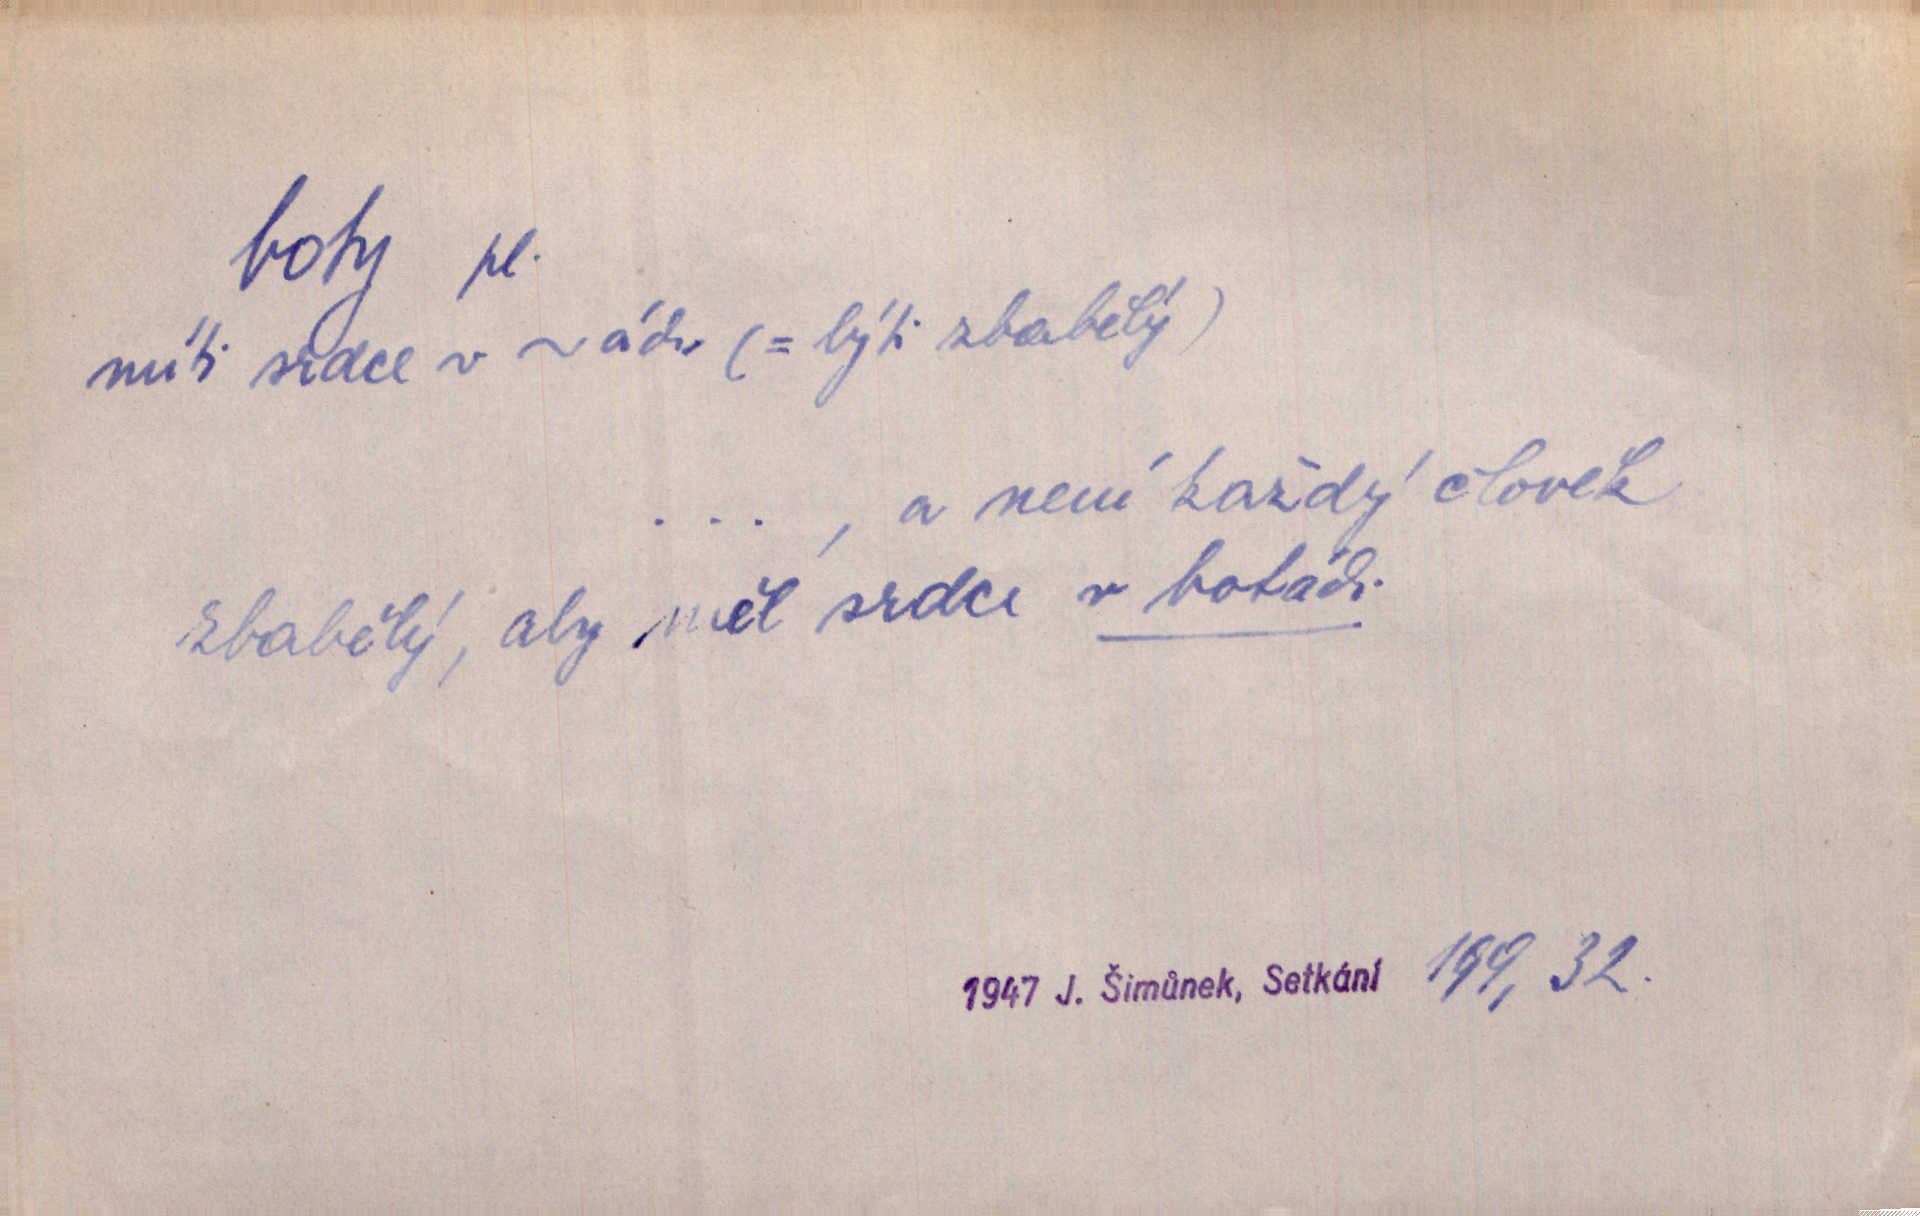 boty pl.
míti srdce v ~ ách (= býti zbabělý)
. . . , a není každý člověk
zbabělý, aby měl srdce v botách.
1947 J. Šimůnek, Setkání 199, 32.